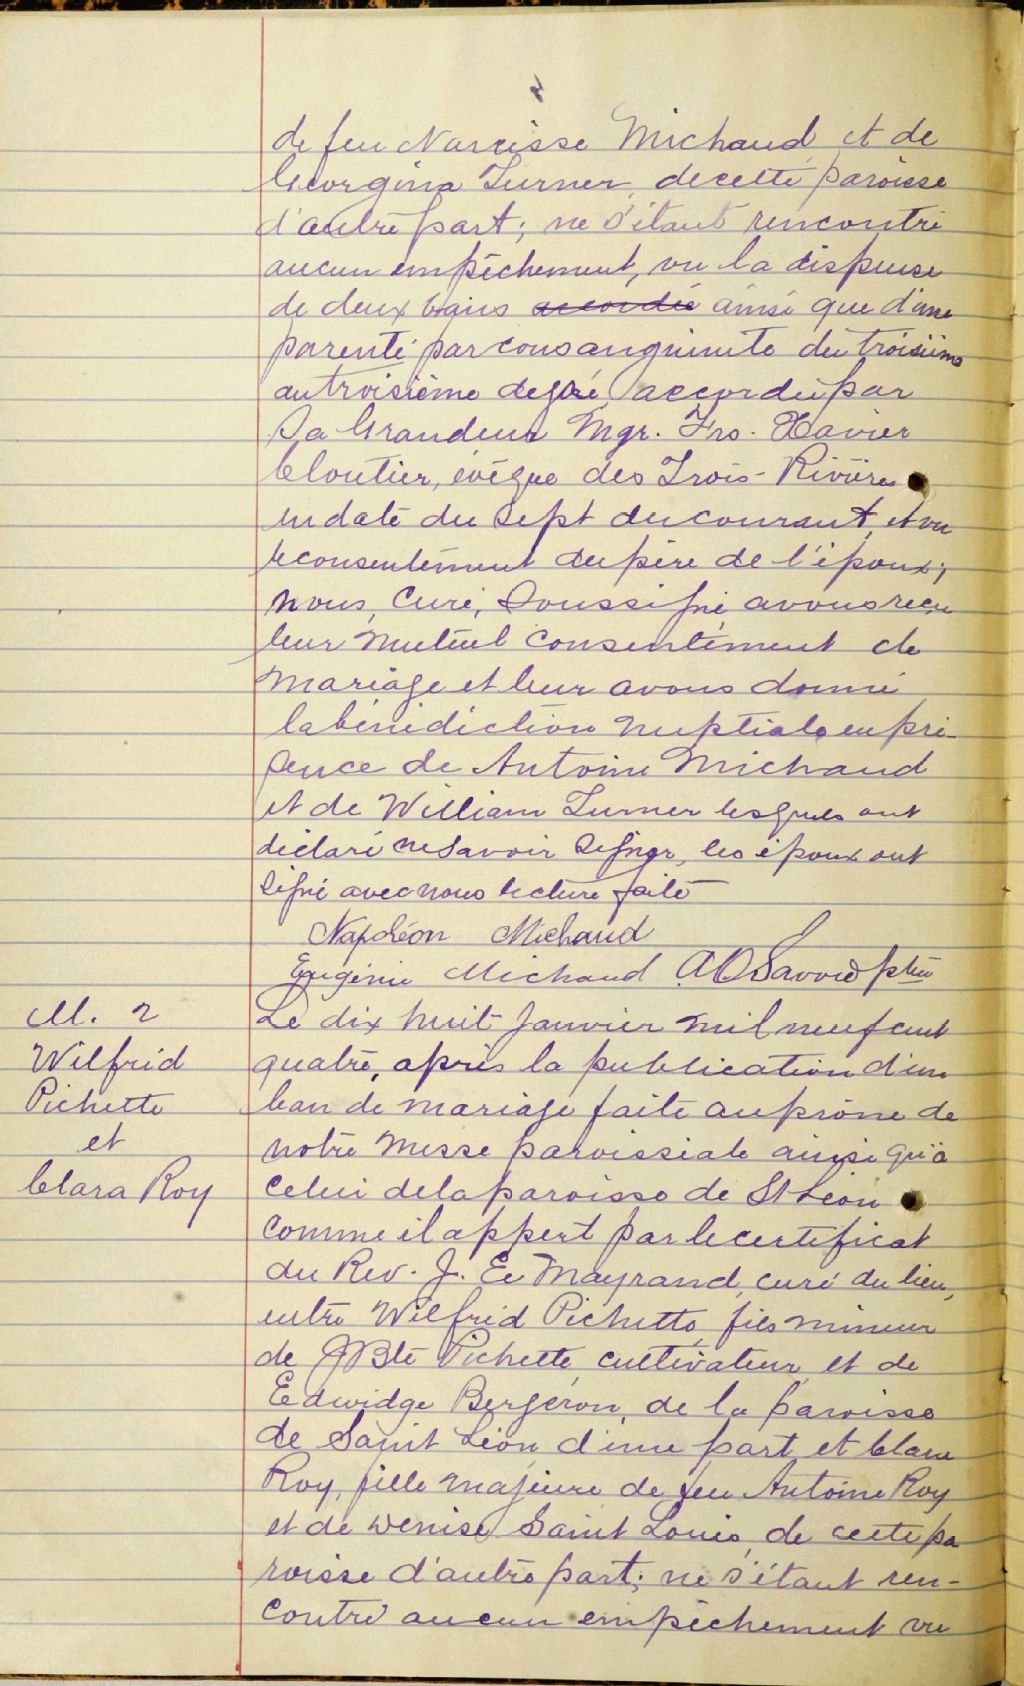 de feu Narcisse Michaud et de
Georgina Turner, de cette paroisse
d'autre part; ne s'étant rencontré
aucun empêchement, vu la dispense
de deux bans accordée ainsi que d'une
parenté par consanguinité du troisième
au troisième degré, accordée par
Sa Grandeur Mgr. Frs. Xavier
Cloutier, évêque des Trois-Rivières
en date du sept du courant, et vu
le consentement du père de l'époux;
nous, Curé, Soussigné avons reçu
leur mutuel consentement de
mariage et leur avons donné
la bénédiction nuptiale en pré-
sence de Antoine Michaud
et de William Turner lesquels ont
déclaré ne savoir signer, les époux ont
signé avec nous lecture faite
Napoléon Michaud
Eugénie Michaud A O Savoie ptre
M. 2
Wilfrid
Pichette
et
Clara Roy
Le dix huit janvier mil neuf cent
quatre, après la publication d'un
ban de mariage faite au prône de
notre messe paroissiale ainsi qu'à
celui de la paroisse de St Léon
comme il appert par le certificat
du Rev. J. E. Mayrand, curé du lieu,
entre Wilfrid Pichette, fils mineur
de J Bte Pichette, cultivateur, et de
Edwidge Bergeron, de la paroisse
de Saint Léon d'une part et Clara
Roy, fille majeure de feu Antoine Roy
et de Denise Saint Louis, de cette pa
roisse d'autre part; ne s'étant ren-
contré aucun empêchement vu